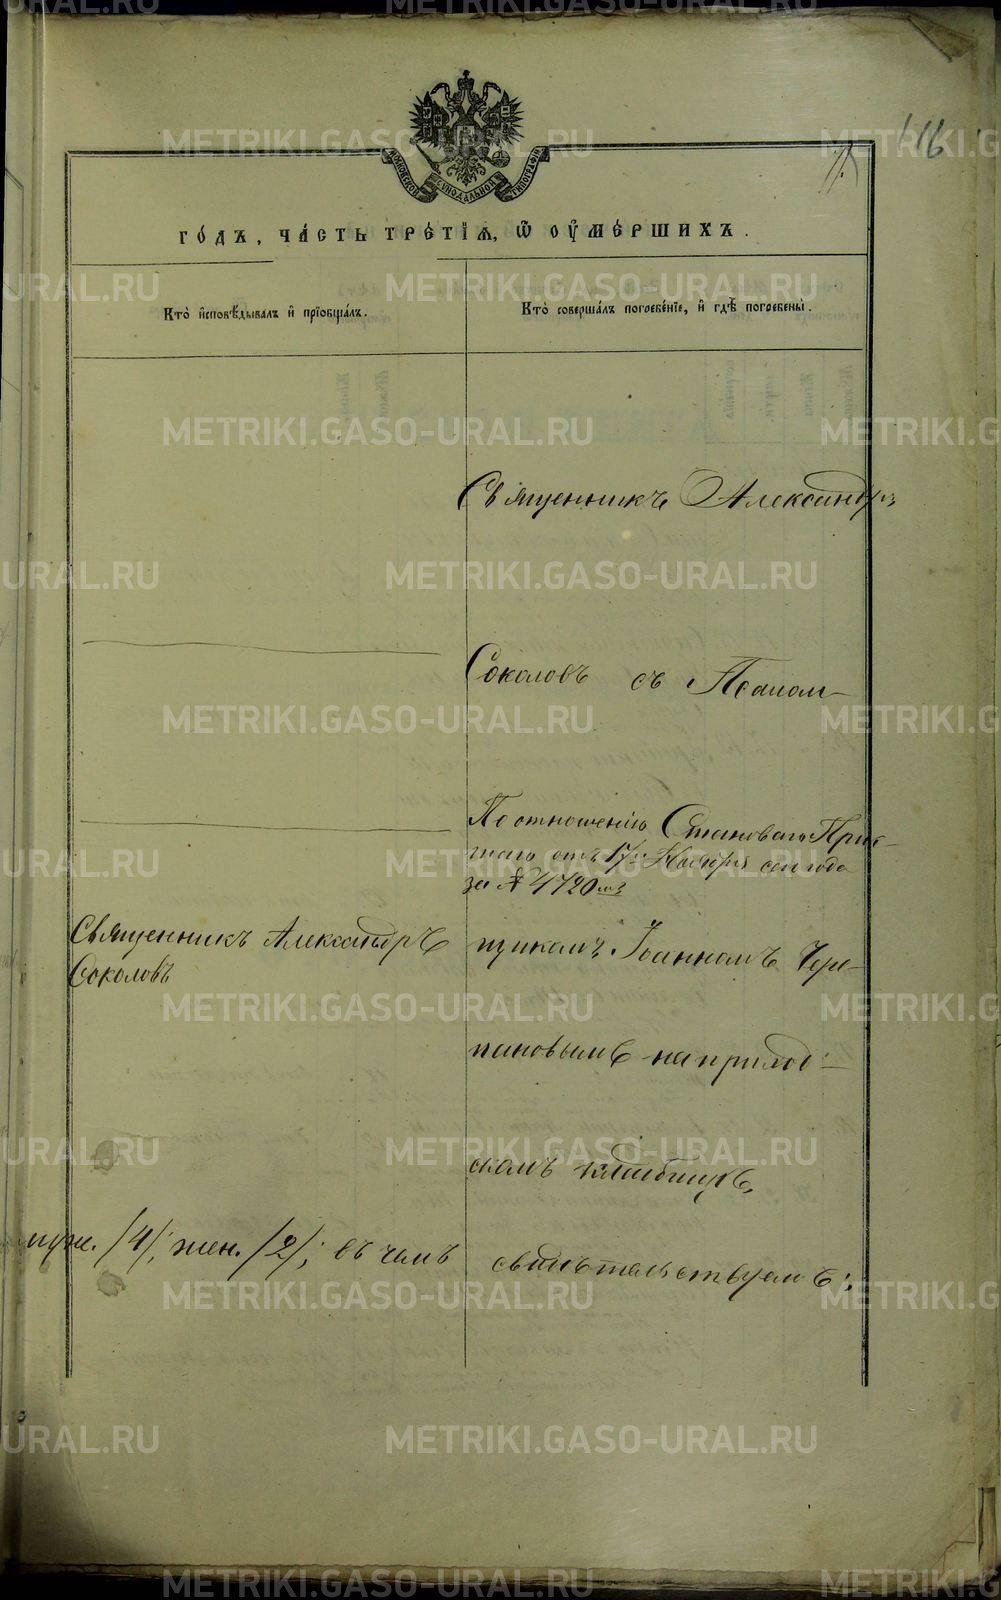 116
МОСКОВСКОЙ СѴНОДАЛЬНОЙ ТИПОГРАФІИ
ГО́ДЪ, ЧА́СТЬ ТРЕ́ТІѦ, Ѽ ОУ҆МЕ́РШИХЪ.
Кто̀ и҆сповѣ́дывалъ и҆ прїобща́лъ.
Кто̀ соверша́лъ погребе́нїе, и҆ гдѣ̀ погребены̀.
Священникъ Александръ
Соколовъ съ Псалом-
По отношенію Становаго Прис-
таго отъ 17го Ноября сего года
за № 4720мъ
Священникъ Александръ
Соколовъ
щикомъ Іоанномъ Чере-
пановымъ на приход-
скомъ кладбищѣ.
муж. /4/, жен. /2/; въ чемъ
свидѣтельствуемъ:
METRIKI.GASO-URAL.RU